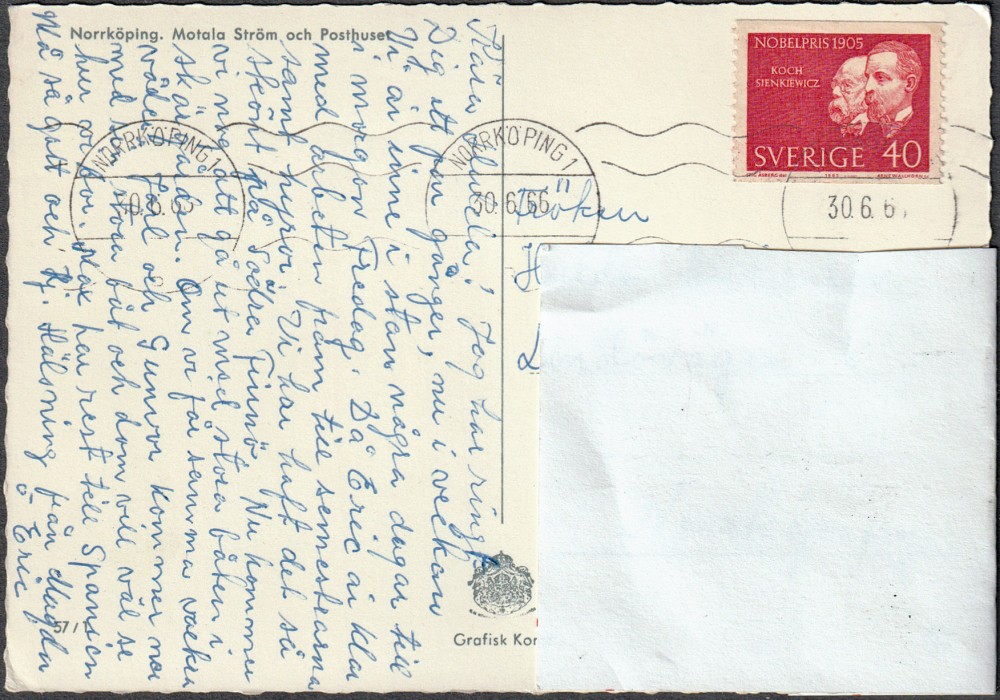 Norrköping. Motala Ström och Posthuset
NOBELPRIS 1905
KOCH
SIENKIEWICZ
SVERIGE 40
NORRKÖPING 1
30.6.66
NORRKÖPING 1
30.6.66
30.6.6
Kära Jag har ringt
Dig ett par gånger, nu i veckan
Vi är inne i stan några dagar till
i morgon Fredag. Då Eric är klar
med arbeten fram till semestrarna
samt hyror. Vi har haft det så
skönt på Södra Finnö. Nu kommer
vi nog att gå ut med stora båten i
skärgården. Om vi får samma vackra
väder. Joel och Gunvor kommer nog
med sin stora båt och dom vill väl se
hur vi bor. Max har rest till Spanien
Må så gott och Hj. Hälsning från Magda
o Eric
Fröken
H
L
57/
Grafisk Kon